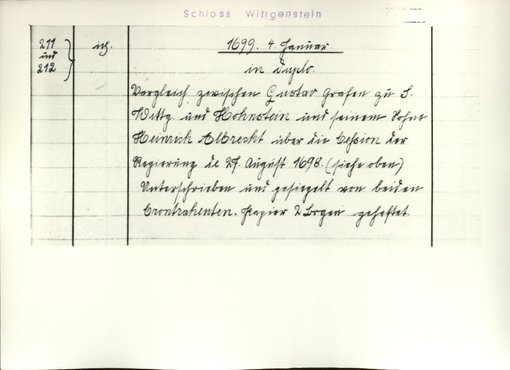 Schloss Wittgenstein
211 und 212
1699. 4. Januar.
in duplo.
Vergleich zwischen Gustav Grafen zu S.
Wittg. und Hohnstein und seinem Sohne
Heinrich Albrecht über die Cession der
Regierung de 27. August 1698. (siehe oben)
Unterschrieben und gesiegelt von beiden
Contrahenten. Papier 2 Bogen geheftet.